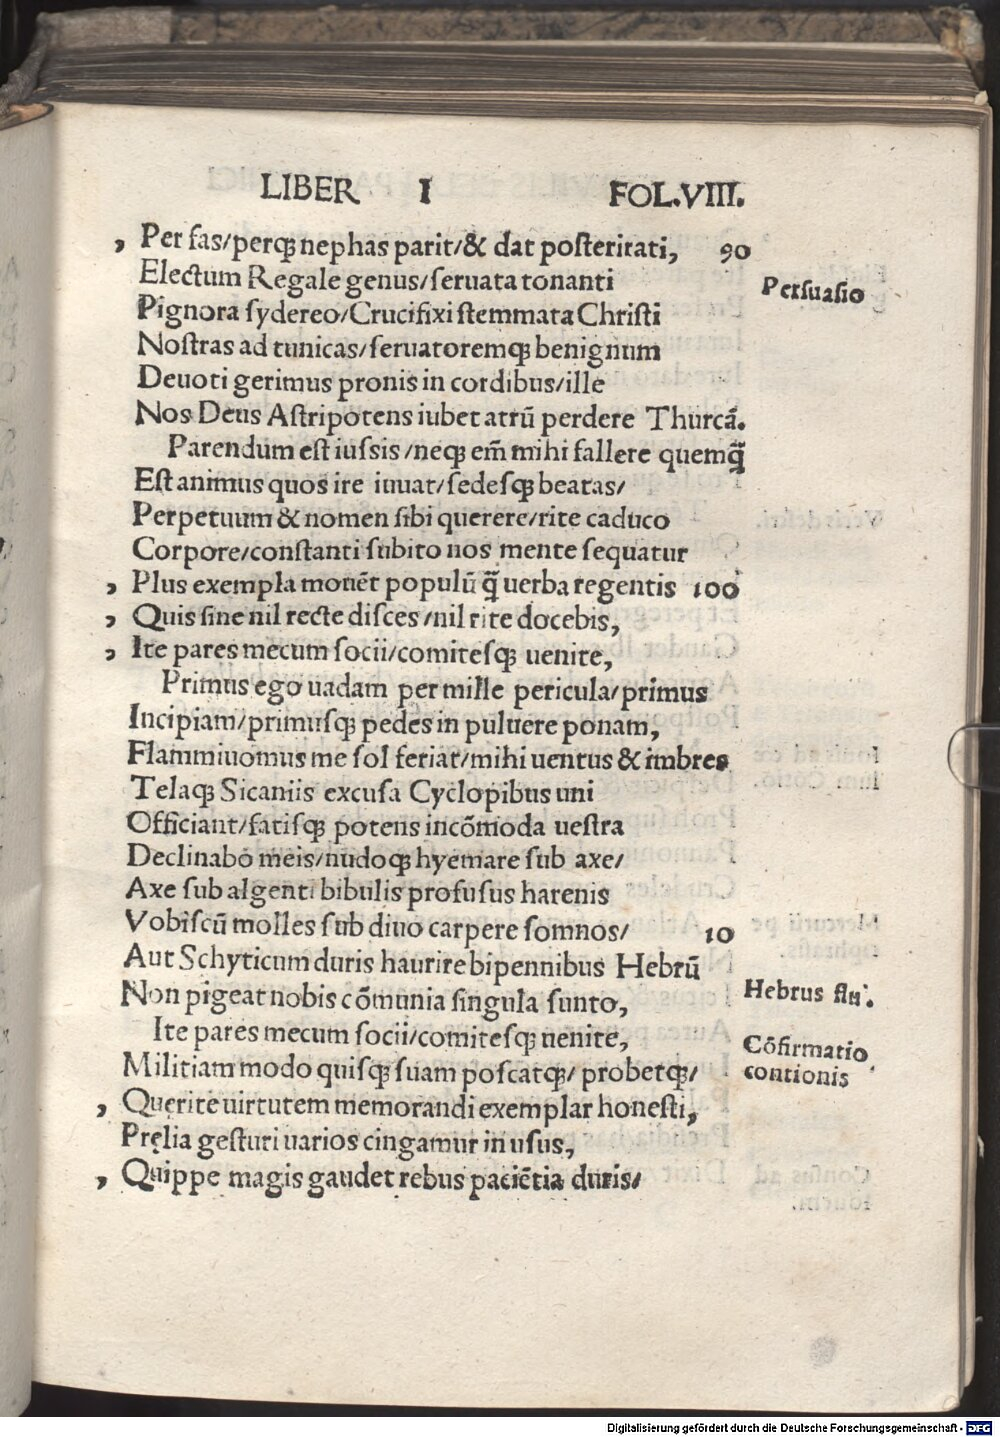 LIBER I FOL.VIII.
, Per fas/perqꝫ nephas parit/& dat posteritati, 90
Electum Regale genus/seruata tonanti Persuasio
Pignora sydereo/Crucifixi stemmata Christi
Nostras ad tunicas/seruatoremqꝫ benignum
Deuoti gerimus pronis in cordibus/ille
Nos Deus Astripotens iubet atrū perdere Thurcā.
Parendum est iussis/neqꝫ em̄ mihi fallere quemq̄̃
Est animus quos ire iuuat/sedesqꝫ beatas/
Perpetuum & nomen sibi querere/rite caduco
Corpore/constanti subito nos mente sequatur
, Plus exempla monēt populū q̄̃ uerba regentis 100
, Quis sine nil recte disces/nil rite docebis,
, Ite pares mecum socii/comitesqꝫ uenite,
Primus ego uadam per mille pericula/primus
Incipiam/primusqꝫ pedes in puluere ponam,
Flammiuomus me sol feriat/mihi uentus & imbres
Telaqꝫ Sicaniis excusa Cyclopibus uni
Officiant/fatisqꝫ potens incōmoda uestra
Declinabo meis/nudoqꝫ hyemare sub axe/
Axe sub algenti bibulis profusus harenis
Vobiscū molles sub diuo carpere somnos/ 10
Aut Schyticum duris haurire bipennibus Hebrū
Non pigeat nobis cōmunia singula sunto, Hebrus flu.
Ite pares mecum socii/comitesqꝫ uenite, Cōfirmatio
Militiam modo quisqꝫ suam poscatqꝫ/ probetqꝫ/ contionis
, Querite uirtutem memorandi exemplar honesti,
Pręlia gesturi uarios cingamur in usus,
, Quippe magis gaudet rebus paciētia duris/
Digitalisierung gefördert durch die Deutsche Forschungsgemeinschaft - DFG